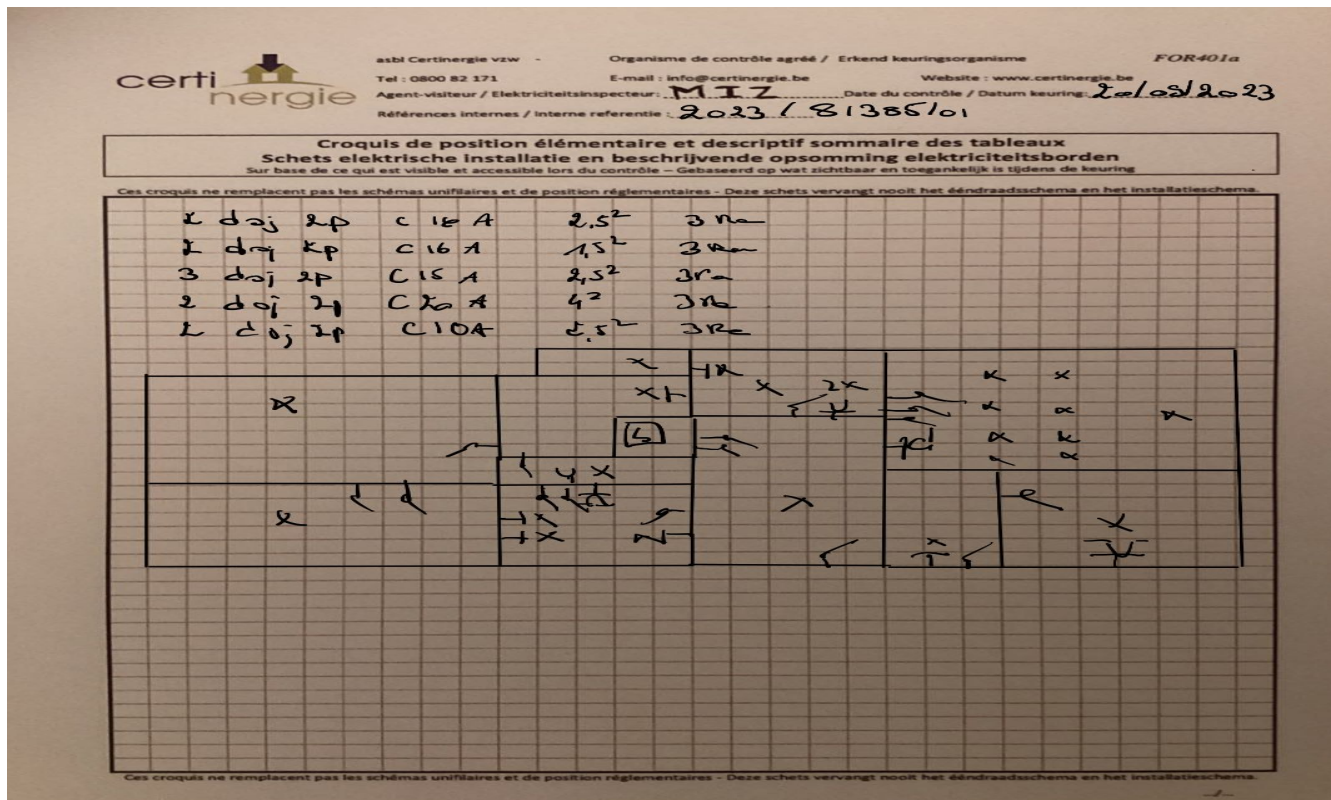 certi
nergie
asbl Certinergie vzw - Organisme de contrôle agréé / Erkend keuringsorganisme FOR401a
Tel : 0800 82 171 E-mail : info@certinergie.be Website : www.certinergie.be
Agent-visiteur / Elektriciteitsinspecteur: MIZ Date du contrôle / Datum keuring: 2023
Références internes / Interne referentie : 2023 / 81385/01
Croquis de position élémentaire et descriptif sommaire des tableaux
Schets elektrische installatie en beschrijvende opsomming elektriciteitsborden
Sur base de ce qui est visible et accessible lors du contrôle – Gebaseerd op wat zichtbaar en toegankelijk is tijdens de keuring
Ces croquis ne remplacent pas les schémas unifilaires et de position réglementaires - Deze schets vervangt nooit het ééndraadsschema en het installatieschema.
doj 2p C A 2,5²
doj C 16 A 1,5²
3 doj 2p C A 2,5²
2 doj C 20 A 4²
doj 2p C 10A
2x
Ces croquis ne remplacent pas les schémas unifilaires et de position réglementaires - Deze schets vervangt nooit het ééndraadsschema en het installatieschema.